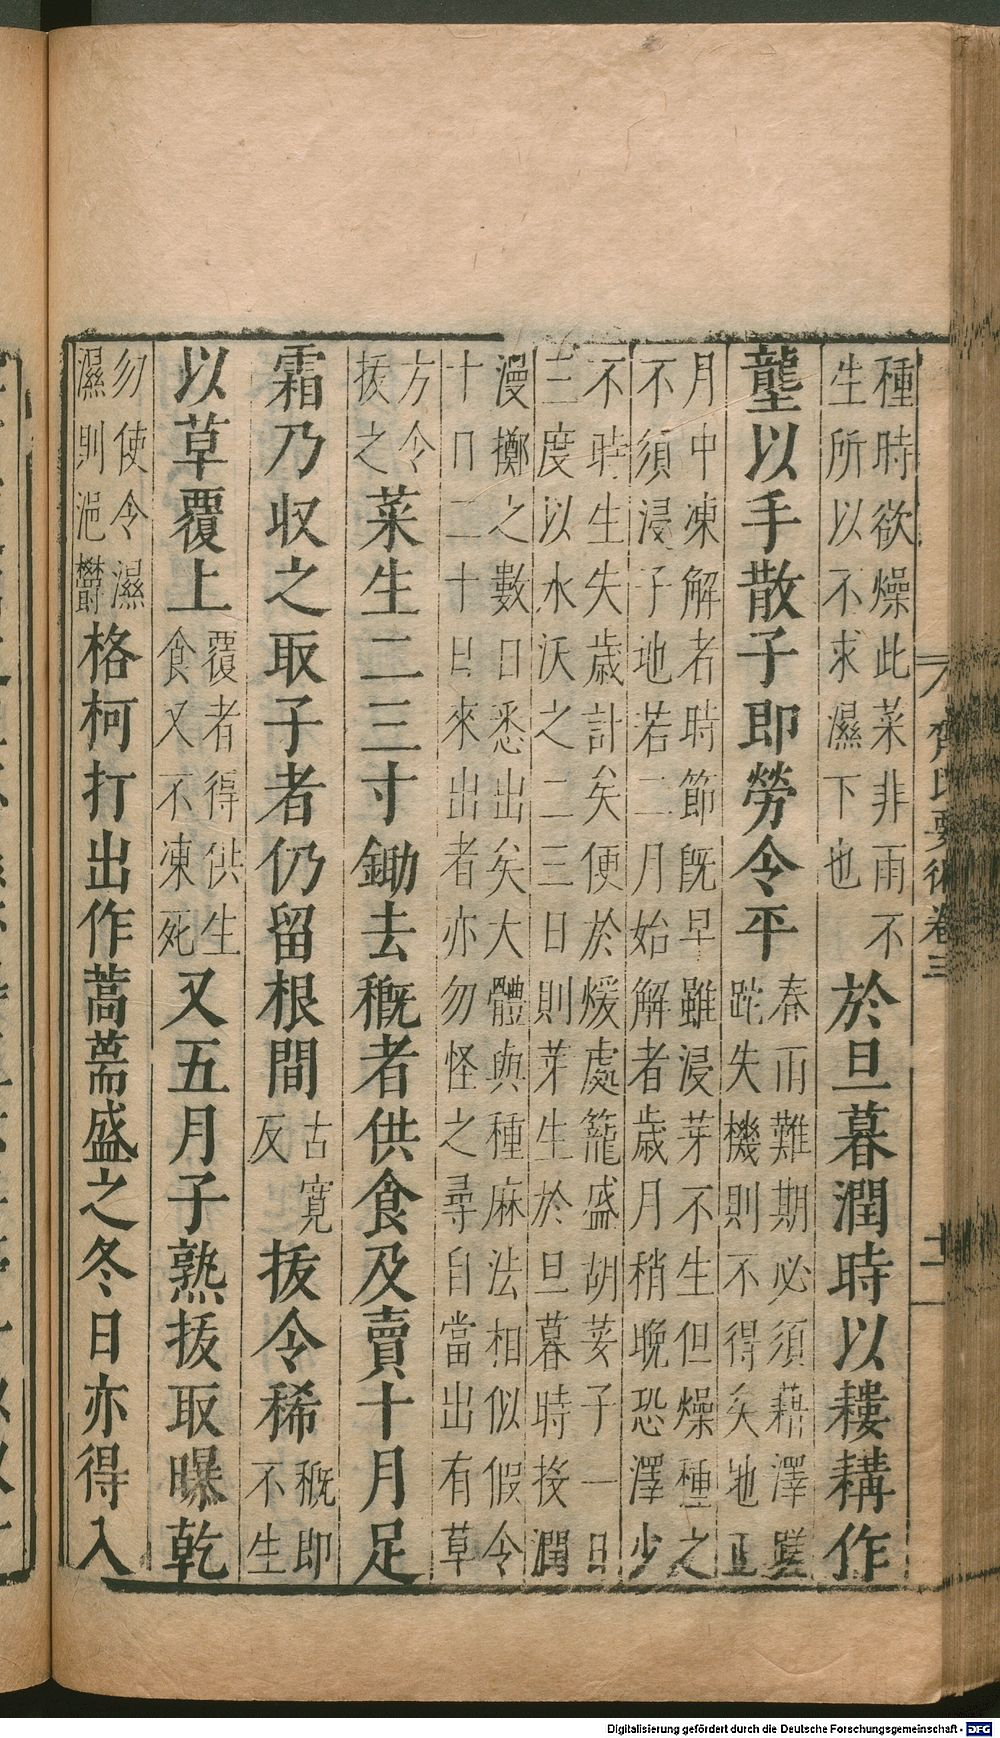 種時欲燥此菜非雨不
生所以不求濕下也
於旦暮潤時以耬耩作
壟以手散子即勞令平
春雨難期必須藉澤蹉
跎失機則不得矣地正
月中凍解者時節既早雖浸芽不生但燥種之
不須浸子地若二月始解者歲月稍晚恐澤少
不時生失歲計矣便於煖處籠盛胡荽子一日
三度以水沃之二三日則芽生於旦暮時接潤
漫擲之數日悉出矣大體與種麻法相似假令
十日二十日來出者亦勿怪之尋自當出有草
方令
拔之
菜生二三寸鋤去穊者供食及賣十月足
霜乃収之取子者仍留根間
古寬
反
拔令稀
穊即
不生
以草覆上
覆者得供生
食又不凍死
又五月子熟拔取曝乾
勿使令濕
濕則浥鬱
格柯打出作蒿䔾盛之冬日亦得入
齊民要術卷三
Digitalisierung gefördert durch die Deutsche Forschungsgemeinschaft - DFG